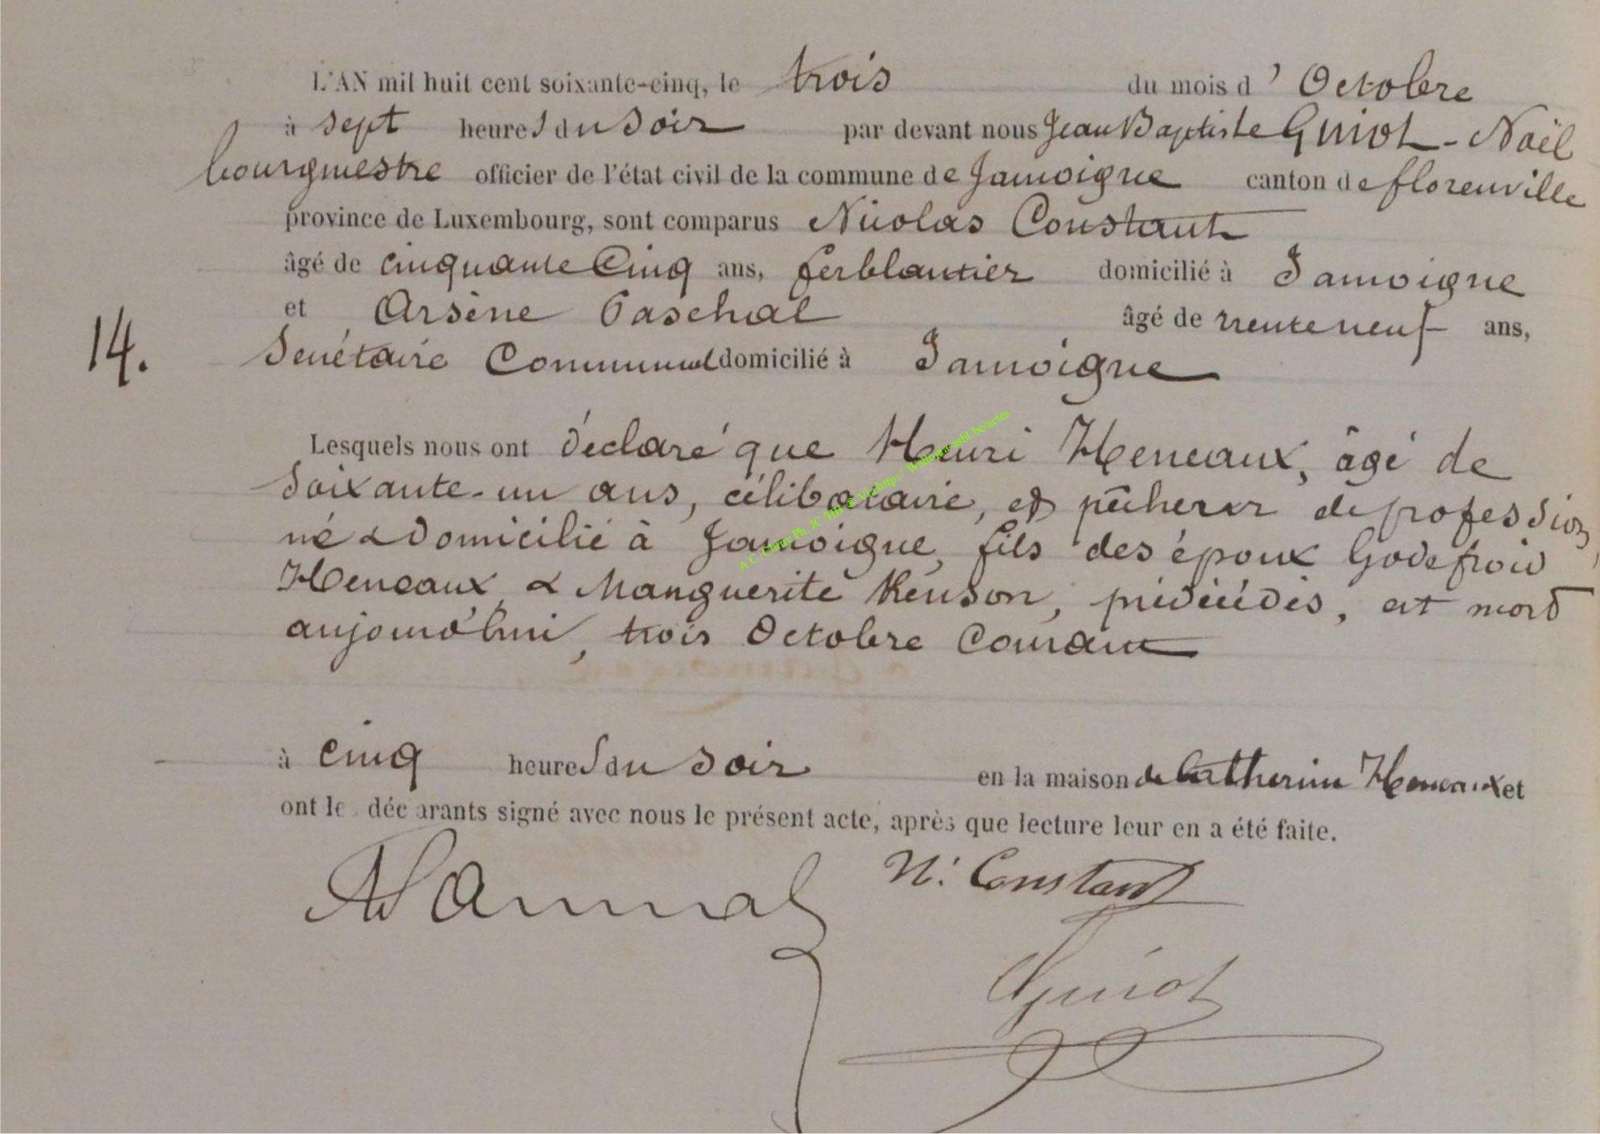 L'AN mil huit cent soixante-cinq, le trois du mois d'Octobre
à sept heures du soir par devant nous Jean Baptiste Guiot-Noël
bourgmestre officier de l'état civil de la commune de Jamoigne canton de florenville
province de Luxembourg, sont comparus Nicolas Constant
âgé de cinquante Cinq ans, ferblantier domicilié à Jamoigne
et Arsène Paschal âgé de trente neuf ans,
14. Secrétaire Communal domicilié à Jamoigne
Lesquels nous ont déclaré que Henri Heneaux, âgé de
soixante-un ans, célibataire, et pêcheur de profession,
né & domicilié à Jamoigne, fils des époux Godefroid
Heneaux & Marguerite Renson, prédécédés, est mort
aujourd'hui, trois Octobre Courant
à cinq heures du soir en la maison de Catherine Heneaux et
ont les déclarants signé avec nous le présent acte, après que lecture leur en a été faite.
N. Constant
Guiot